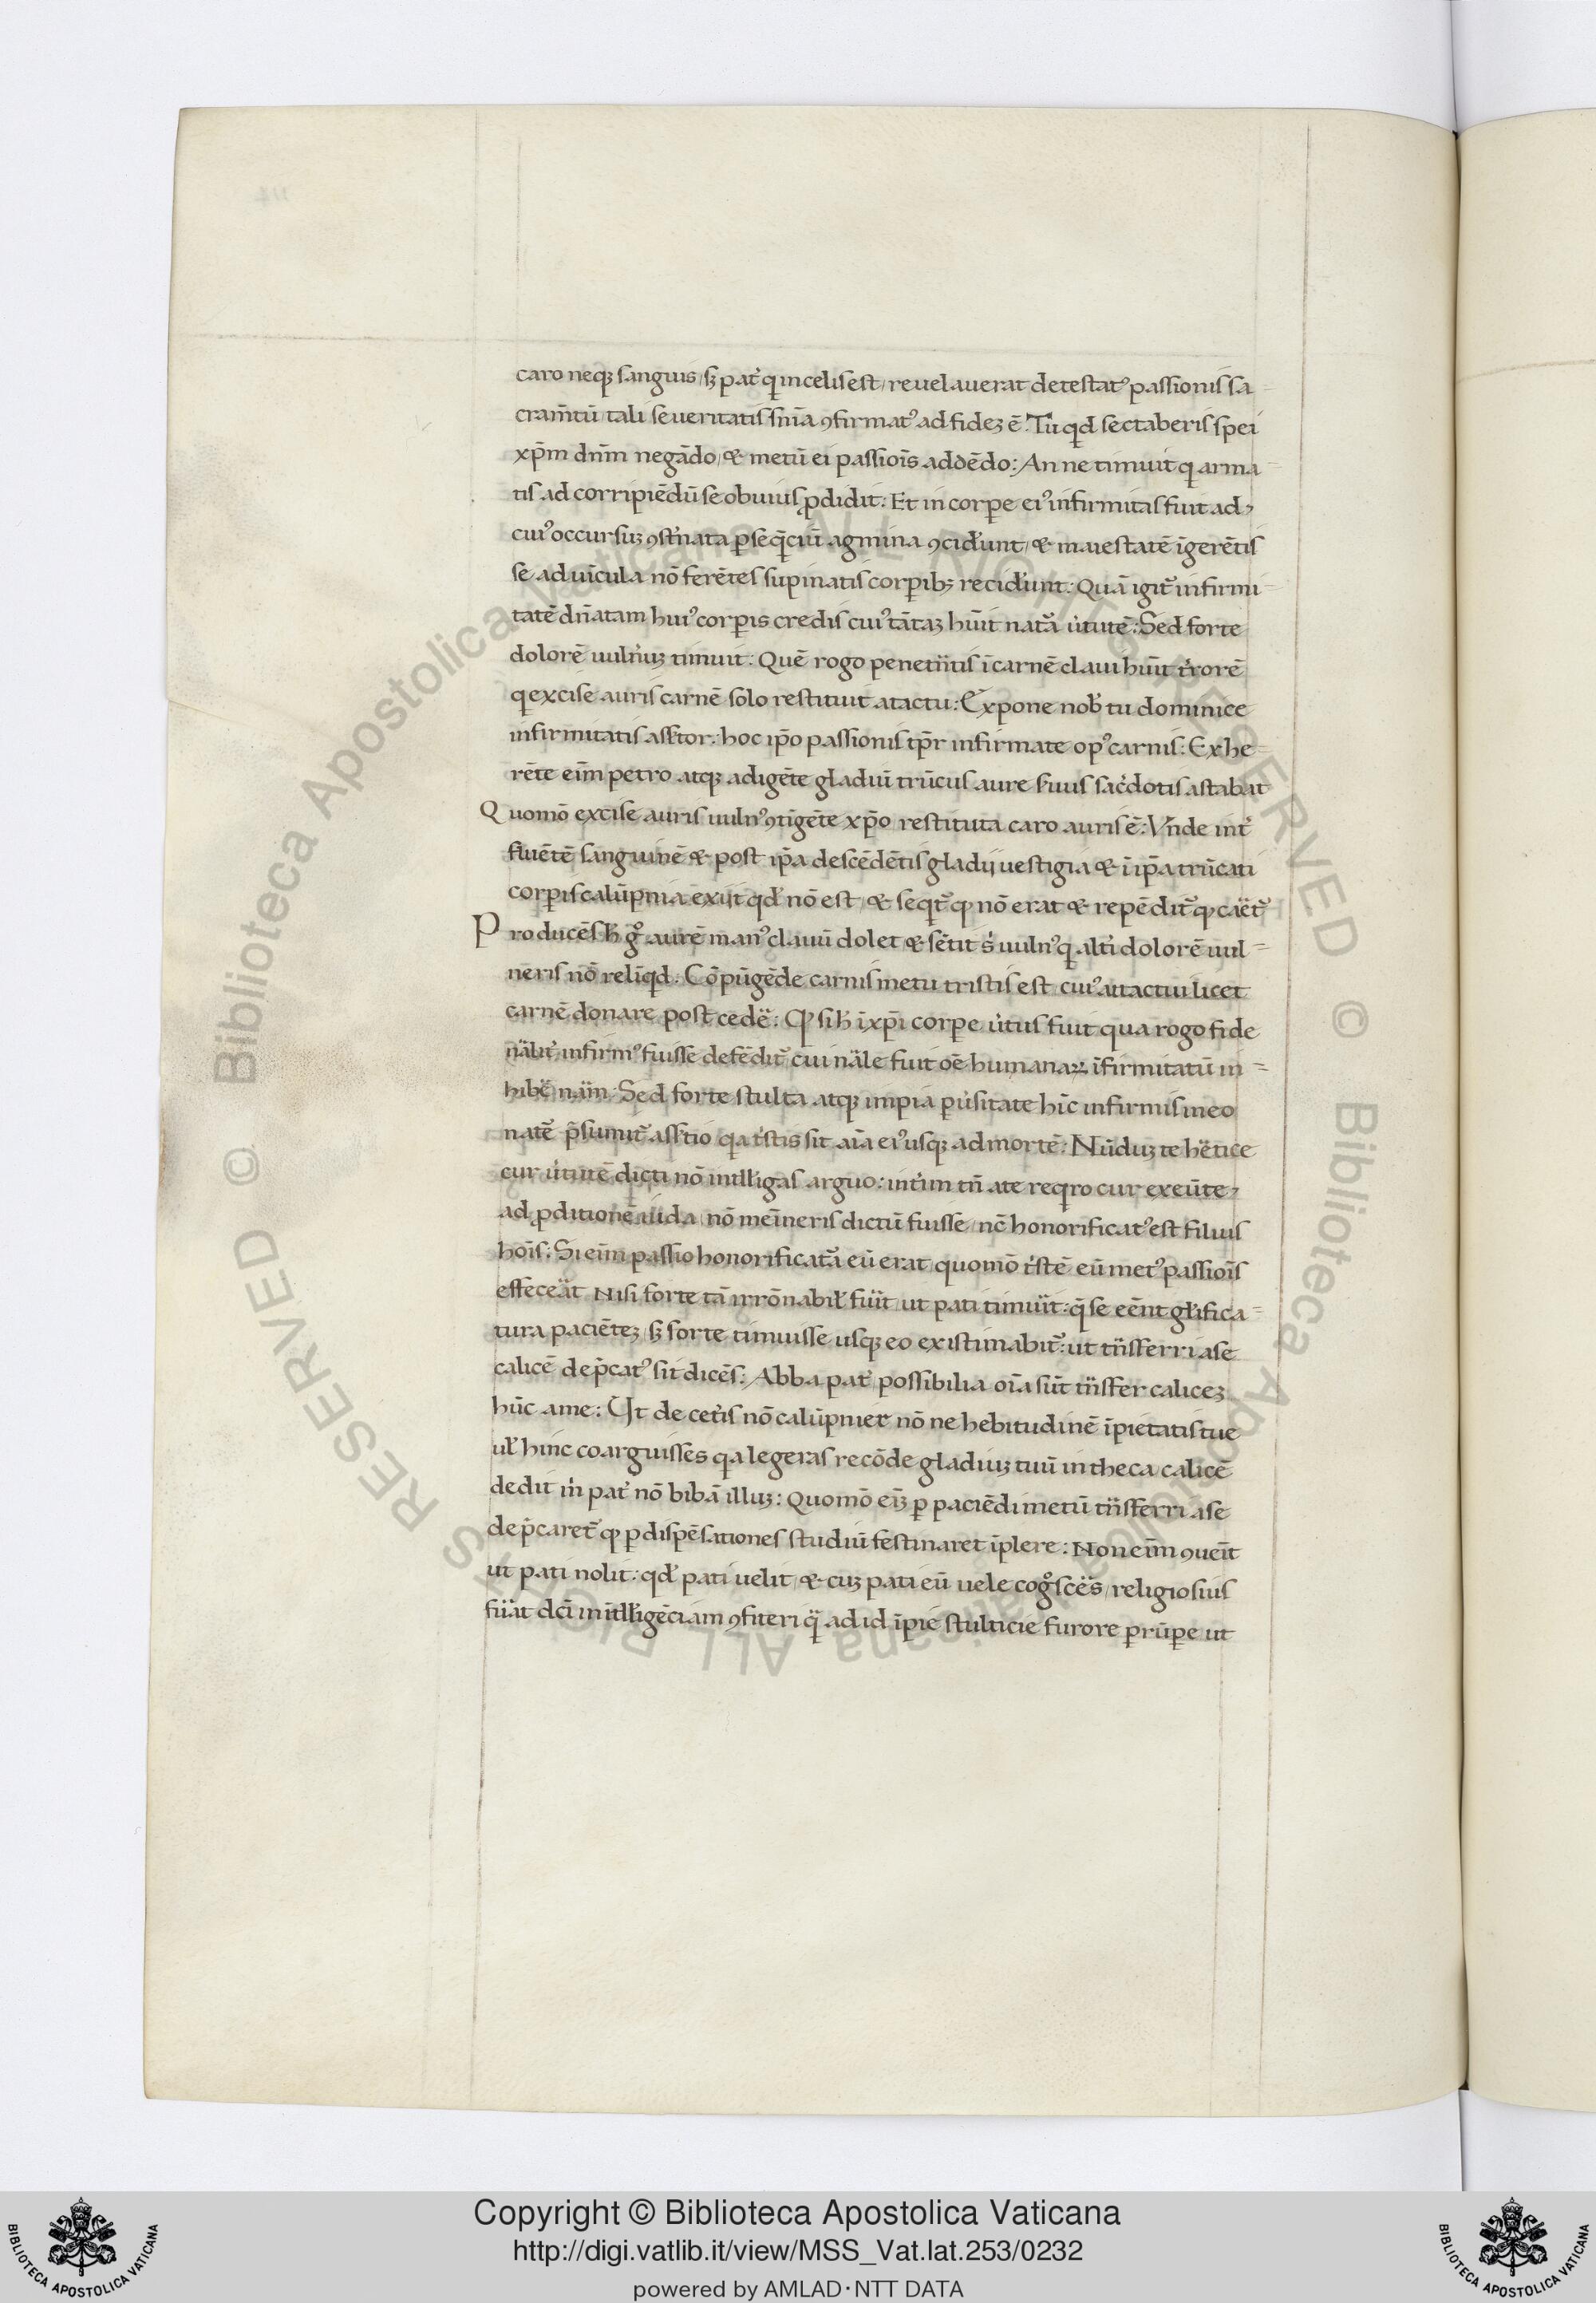 caro neqꝫ sanguis / sꝫ pat̓ q̇ in celis est / reuelauerat detestatꝰ passionis sa-
cram̄tū / tali seueritatis sn̄ia ꝯfirmatꝰ ad fideꝫ ē. Tu qd̓ sectaberis spei
xp̄m dn̄m negādo / & metū ei passiōis addēdo: An ne timuit q̇ arma-
tis ad corripiēdū se obuius ꝓdidit: Et in corꝑe eiꝰ infirmitas fuit ad
cuiꝰ occursuꝫ ꝯst̓nata ꝑseq̄ciū agmina ꝯcid̓unt / & maiestatē īgerētis
se ad uīcula nō ferētes supinatis corꝑibꝫ recid̓unt: Quā igit᷑ infirmi-
tatē dn̄atam huiꝰ corꝑis credis cuiꝰ tātaꝫ hūit nat᷑a u̓tutē: Sed forte
dolorē uuln̓uꝫ timuit: Quē rogo penet̓ntis ī carnē claui hūit t̓rorē
q̇ excise auris carnē solo restituit atactu: Expone nob̓ tu dominice
infirmitatis ass̓tor: hoc ip̄o passionis tp̄r infirmate opꝰ carnis: Exhe-
rēte eim̄ petro atqꝫ adigēte gladiū trūcus aure s̓uus sac̓dotis astabat
Quomō excise auris uulnꝰ ꝯtigēte xp̄o restituta caro auris ē: Vn̄de int̓
fluētē sanguinē & post ip̄a descēdētis gladij uestigia & ī ip̄a trūcati
corꝑis calūpnia exijt qd̓ nō est / & seqt᷑ ꝙ nō erat & repēdit᷑ ꝙ caët᷑
Producēs h̓ g̊ aurē manꝰ clauū dolet & sētit s̓ uulnꝰ q̇ alt̓i dolorē uul-
neris nō reliq̇d: Cōpūgēde carnis metu tristis est cuiꝰ attactui licet
carnē donare post cedē̈: Ꝙ si h̓ ī xp̄i corꝑe u̓tus fuit qua rogo fide
nälit̓ infirmꝰ fuisse defēdit᷑ cui näle fuit oē humanaꝝ īfirmitatū in-
hibē̈ näm: Sed forte stulta atqꝫ impia ꝑu̓sitate hīc infirmis ineo
natē p̄sumit᷑ ass̓tio q̇a t̓stis sit aīa eiꝰ usqꝫ ad mortē: Nūduꝫ te hētice
cur u̓tutē dicti nō intll̓igas arguo: int̓im tn̄ ate req̇ro cur exeūte
ad ꝓditionē iuda / nō mēineris dictū fuisse / nc̄ honorificatꝰ est filius
hoīs: Si eim̄ passio honorificat᷑a eū erat / quomō t̓stē eū metꝰ passiōis
effeceät Nisi forte tā irrōnabil̓ fuït / ut pati timuït: q̄ se eēnt gl̓ifica-
tura paciēteꝫ / sꝫ forte timuisse usqꝫ eo existimabit᷑: ut tn̈sferri ase
calicē dep̄catꝰ sit dicēs: Abba pat̓ possibilia oīa sūt tn̈sfer caliceꝫ
hūc ame: Ut de cet̓is nō calūpnier nō ne hebitudinē īpietatis tue
ul̓ hinc coarguisses q̇a legeras recōde gladiuꝫ tuū in theca / calicē
dedit m̓ pat̓ nō bibā illuꝫ: Quomō eīꝫ ꝑ paciēdi metū tn̈sferri ase
dep̄caret᷑ ꝙ ꝑ dispēsationes studiū festinaret īplere: Non eim̄ ꝯueīt
ut pati nolit: qd̓ pati uelit / & cuꝫ pati eū uele cog̊scēs̈ / religiosius
fuïat dc̄i inītll̓igēciam ꝯfiteri q̈ ad id īpie stulticie furore prūꝑe ut
Copyright © Biblioteca Apostolica Vaticana
http://digi.vatlib.it/view/MSS_Vat.lat.253/0232
powered by AMLAD·NTT DATA